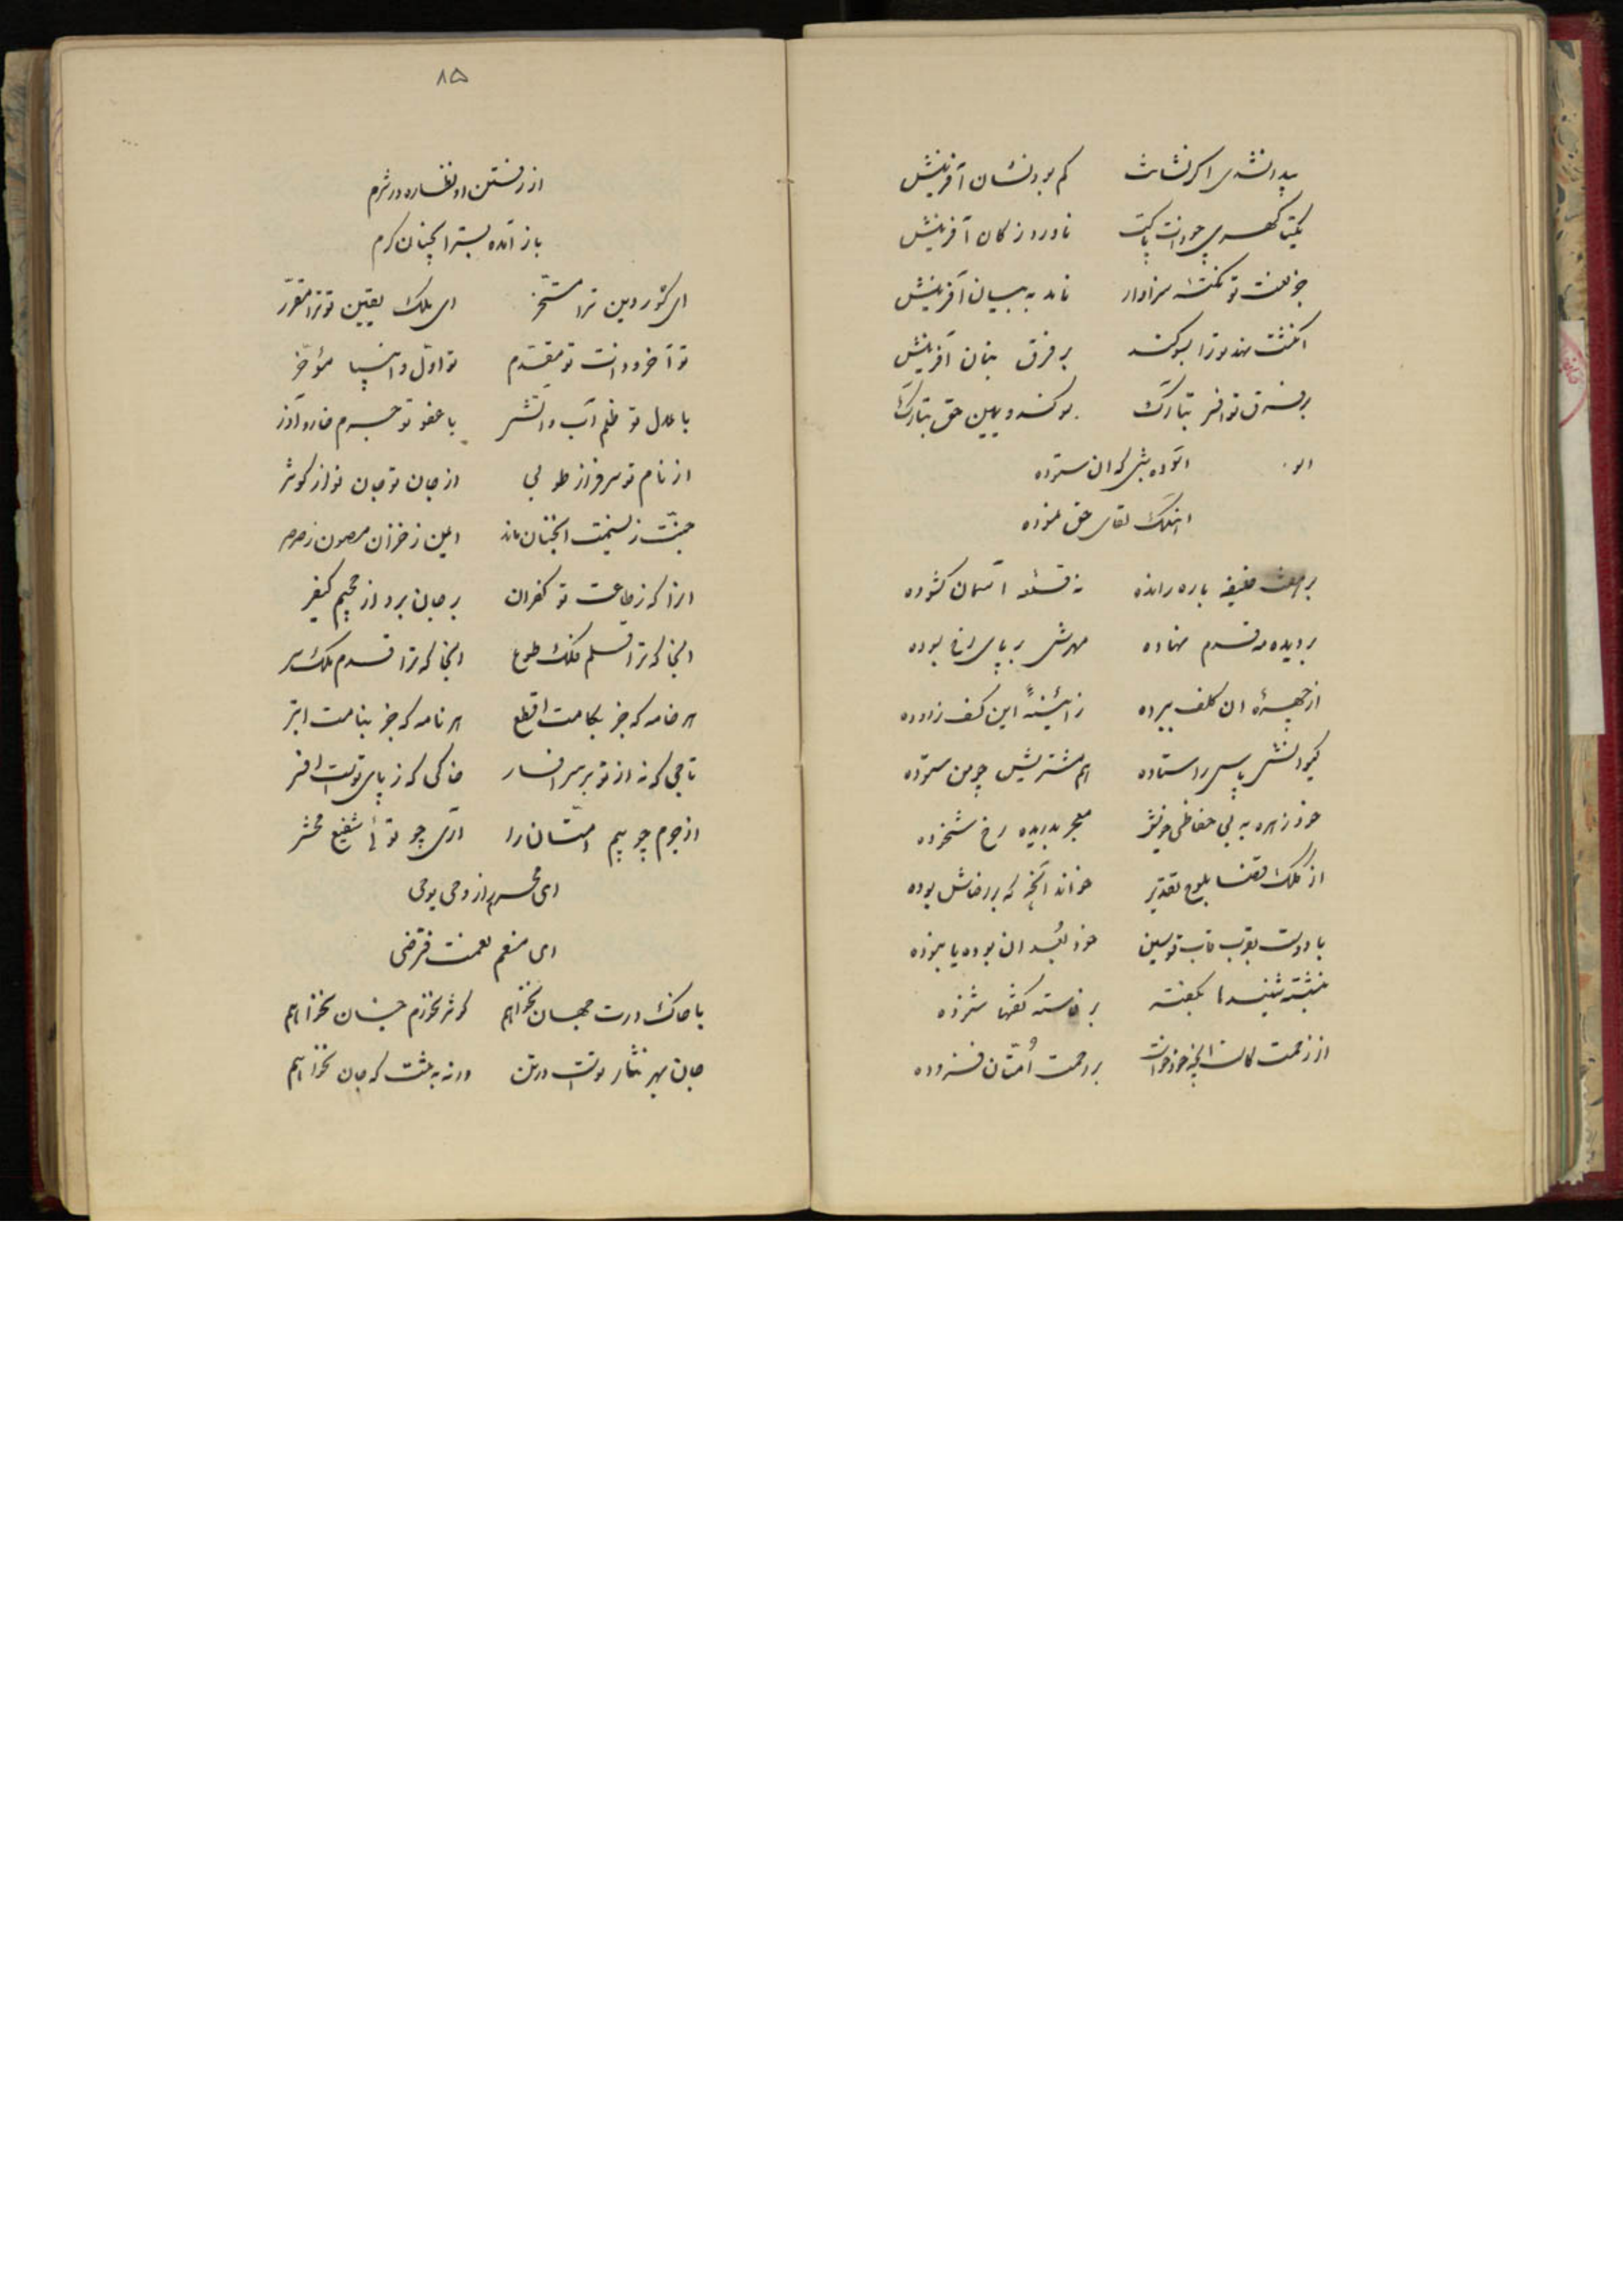 پیدا نشدی اگر نشانت کم بود نشان آفرینش
یکتا گهری چو ذات پاکت ناورد ز کان آفرینش
جز نعت تو نکته سزاوار ناید به بیان آفرینش
انگشت نهد ترا بسوگند بر فرق بنان آفرینش
بر فرق تو افسر تبارک سوگند و یمین حق تبارک
آسوده بثنی که آن ستوده
اینک لقای حق نموده
بر هفت خلیفه باره رانده نه قلعه آسمان گشوده
بر دیده مه قدم نهاده مهرش بر پای رخ بسوده
از چهره آن کلف ببرده ز آئینه این کسف زدوده
کیوانش بپاس در ستاده هم مشتریش چو من ستوده
خود زهره به بی حفاظی خویش معجر بدریده رخ شخوده
از کلک قضا بلوح تقدیر خوانده آنچه که بر رضاش بوده
با دوست بقرب قاب قوسین خود بُعد آن بوده یا نبوده
بنشسته شنیدها بگفته برخاسته گفتها شنوده
از زحمت کاست آنچه خود خواست بر رحمت اُمّتان فزوده
۸۵
از رفتن او نظاره در شرم
باز آمده بسترا همچنان گرم
ای کشور دین ترا مسخّر ای ملک یقین تو ترا مقرّر
تو آخر و ذات تو مقدّم تو اوّل و انبیا مؤخّر
با عدل تو ظلم آب و آتش با عفو تو جرم خار و آذر
از نام تو سرفراز طوبی از جان تو جان نواز کوثر
جنّت ز نسیمت آنچنان ماند ایمن ز خزان مصون ز صرصر
آنرا که ز طاعت تو کفران بر جان برد از جحیم کیفر
آنجا که ترا قلم فلک طوع آنجا که ترا قدم ملک سر
هر خامه که جز بکامت اقطع هر نامه که جز بنامت ابتر
تاجی که نه از تو بر سر افسار خاکی که ز پای تو است افسر
از جرم چو بیم امّتان را آری چو توئی شفیع محشر
ای محرم راز وحی یوحی
ای منعم نعمت فترضی
با خاک درت جهان نخواهم کوثر نخورم جنان نخواهم
جان بهر نثار تو است در تن ورنه به تنت که جان نخواهم